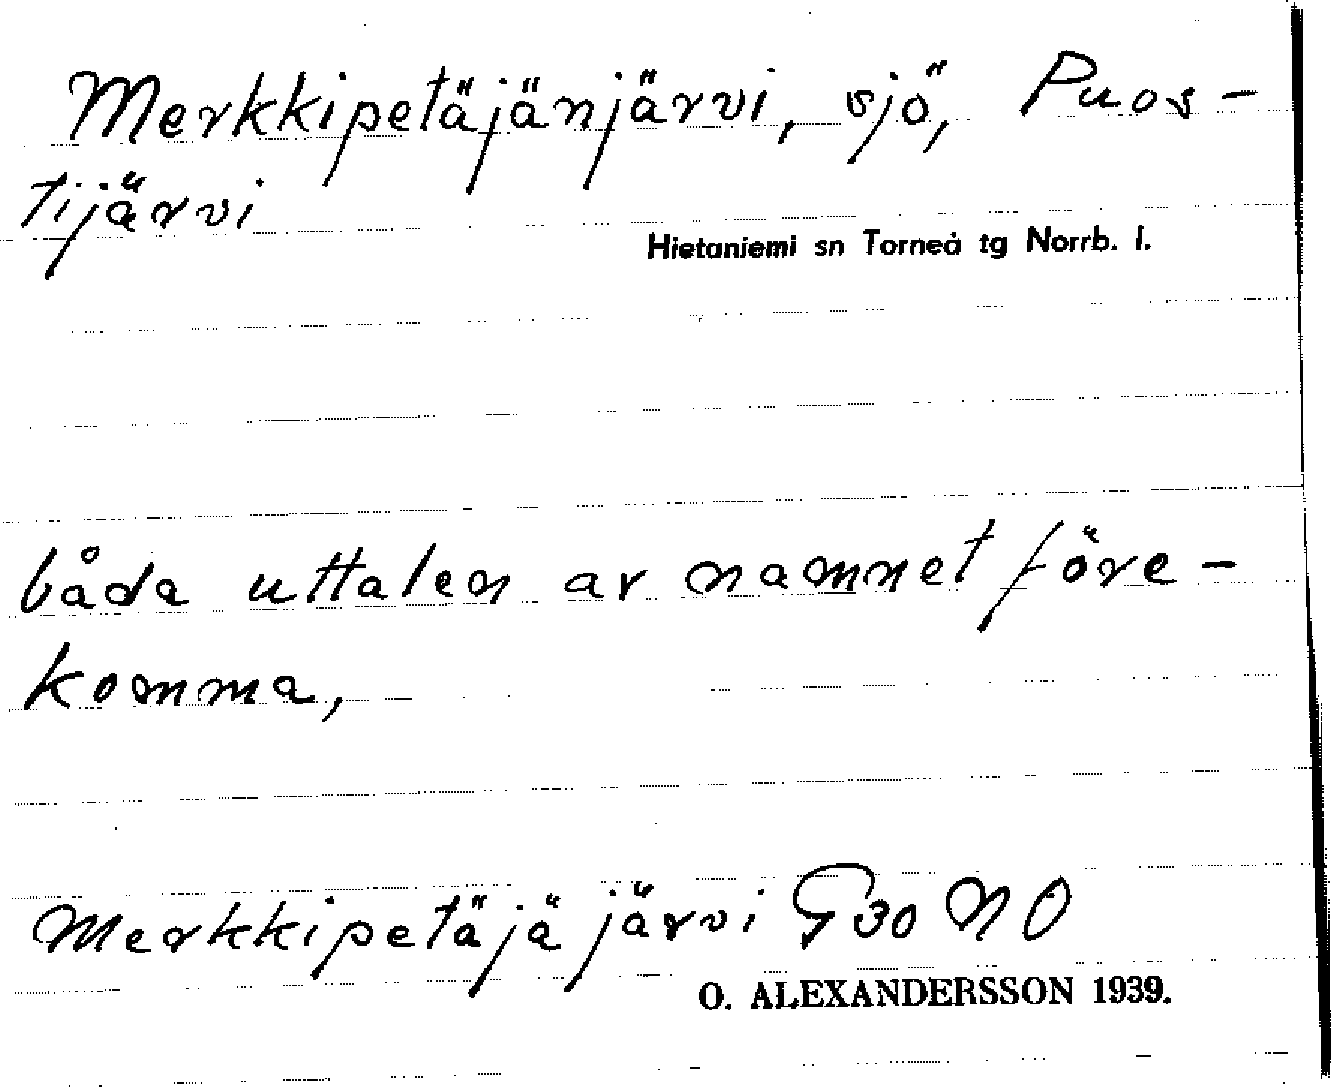 Merkkipetäjänjärvi, sjö, Puos-
tijärvi
Hietaniemi sn Torneå tg Norrb. l.
båda uttalen av namnet före-
komma,
Merkkipetäjä järvi G30 NO
O. ALEXANDERSSON 1939.